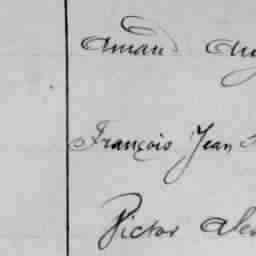 Amand Aug
François Jean
Victor Alex